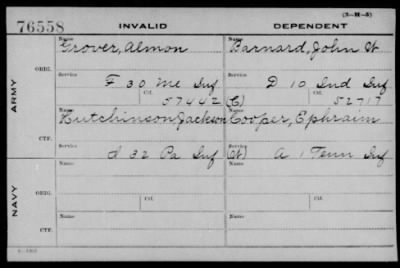 (3-H-5)
76558 INVALID DEPENDENT
Name Name
Grover, Almon Barnard, John W
ORIG. Service Service
F 30 Me Inf D 10 Ind Inf
Ctf. Ctf.
57442 (C) 52717
ARMY
Name Name
Hutchinson, Jackson Cooper, Ephraim
CTF. Service Service
d 32 Pa Inf A 1 Tenn Inf
Name Name
ORIG. Service Ctf. Service Ctf.
NAVY
Name Name
CTF. Service Service